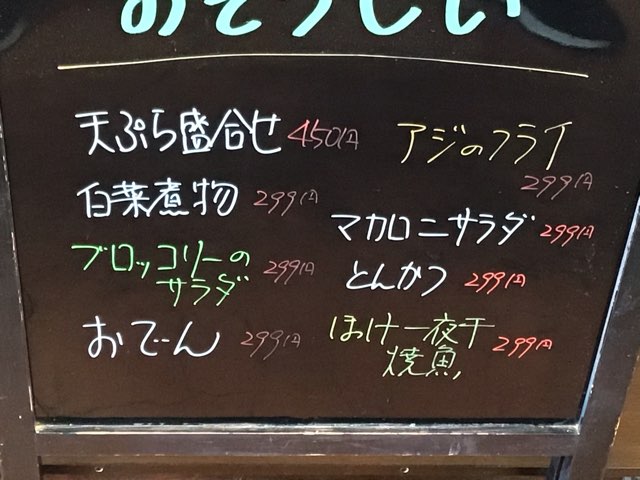 おそうじい
天ぷら盛合せ 450円
白菜煮物 299円
ブロッコリーの
サラダ 299円
おでん 299円
アジのフライ
299円
マカロニサラダ 299円
とんかつ 299円
ほけ一夜干
焼魚 299円